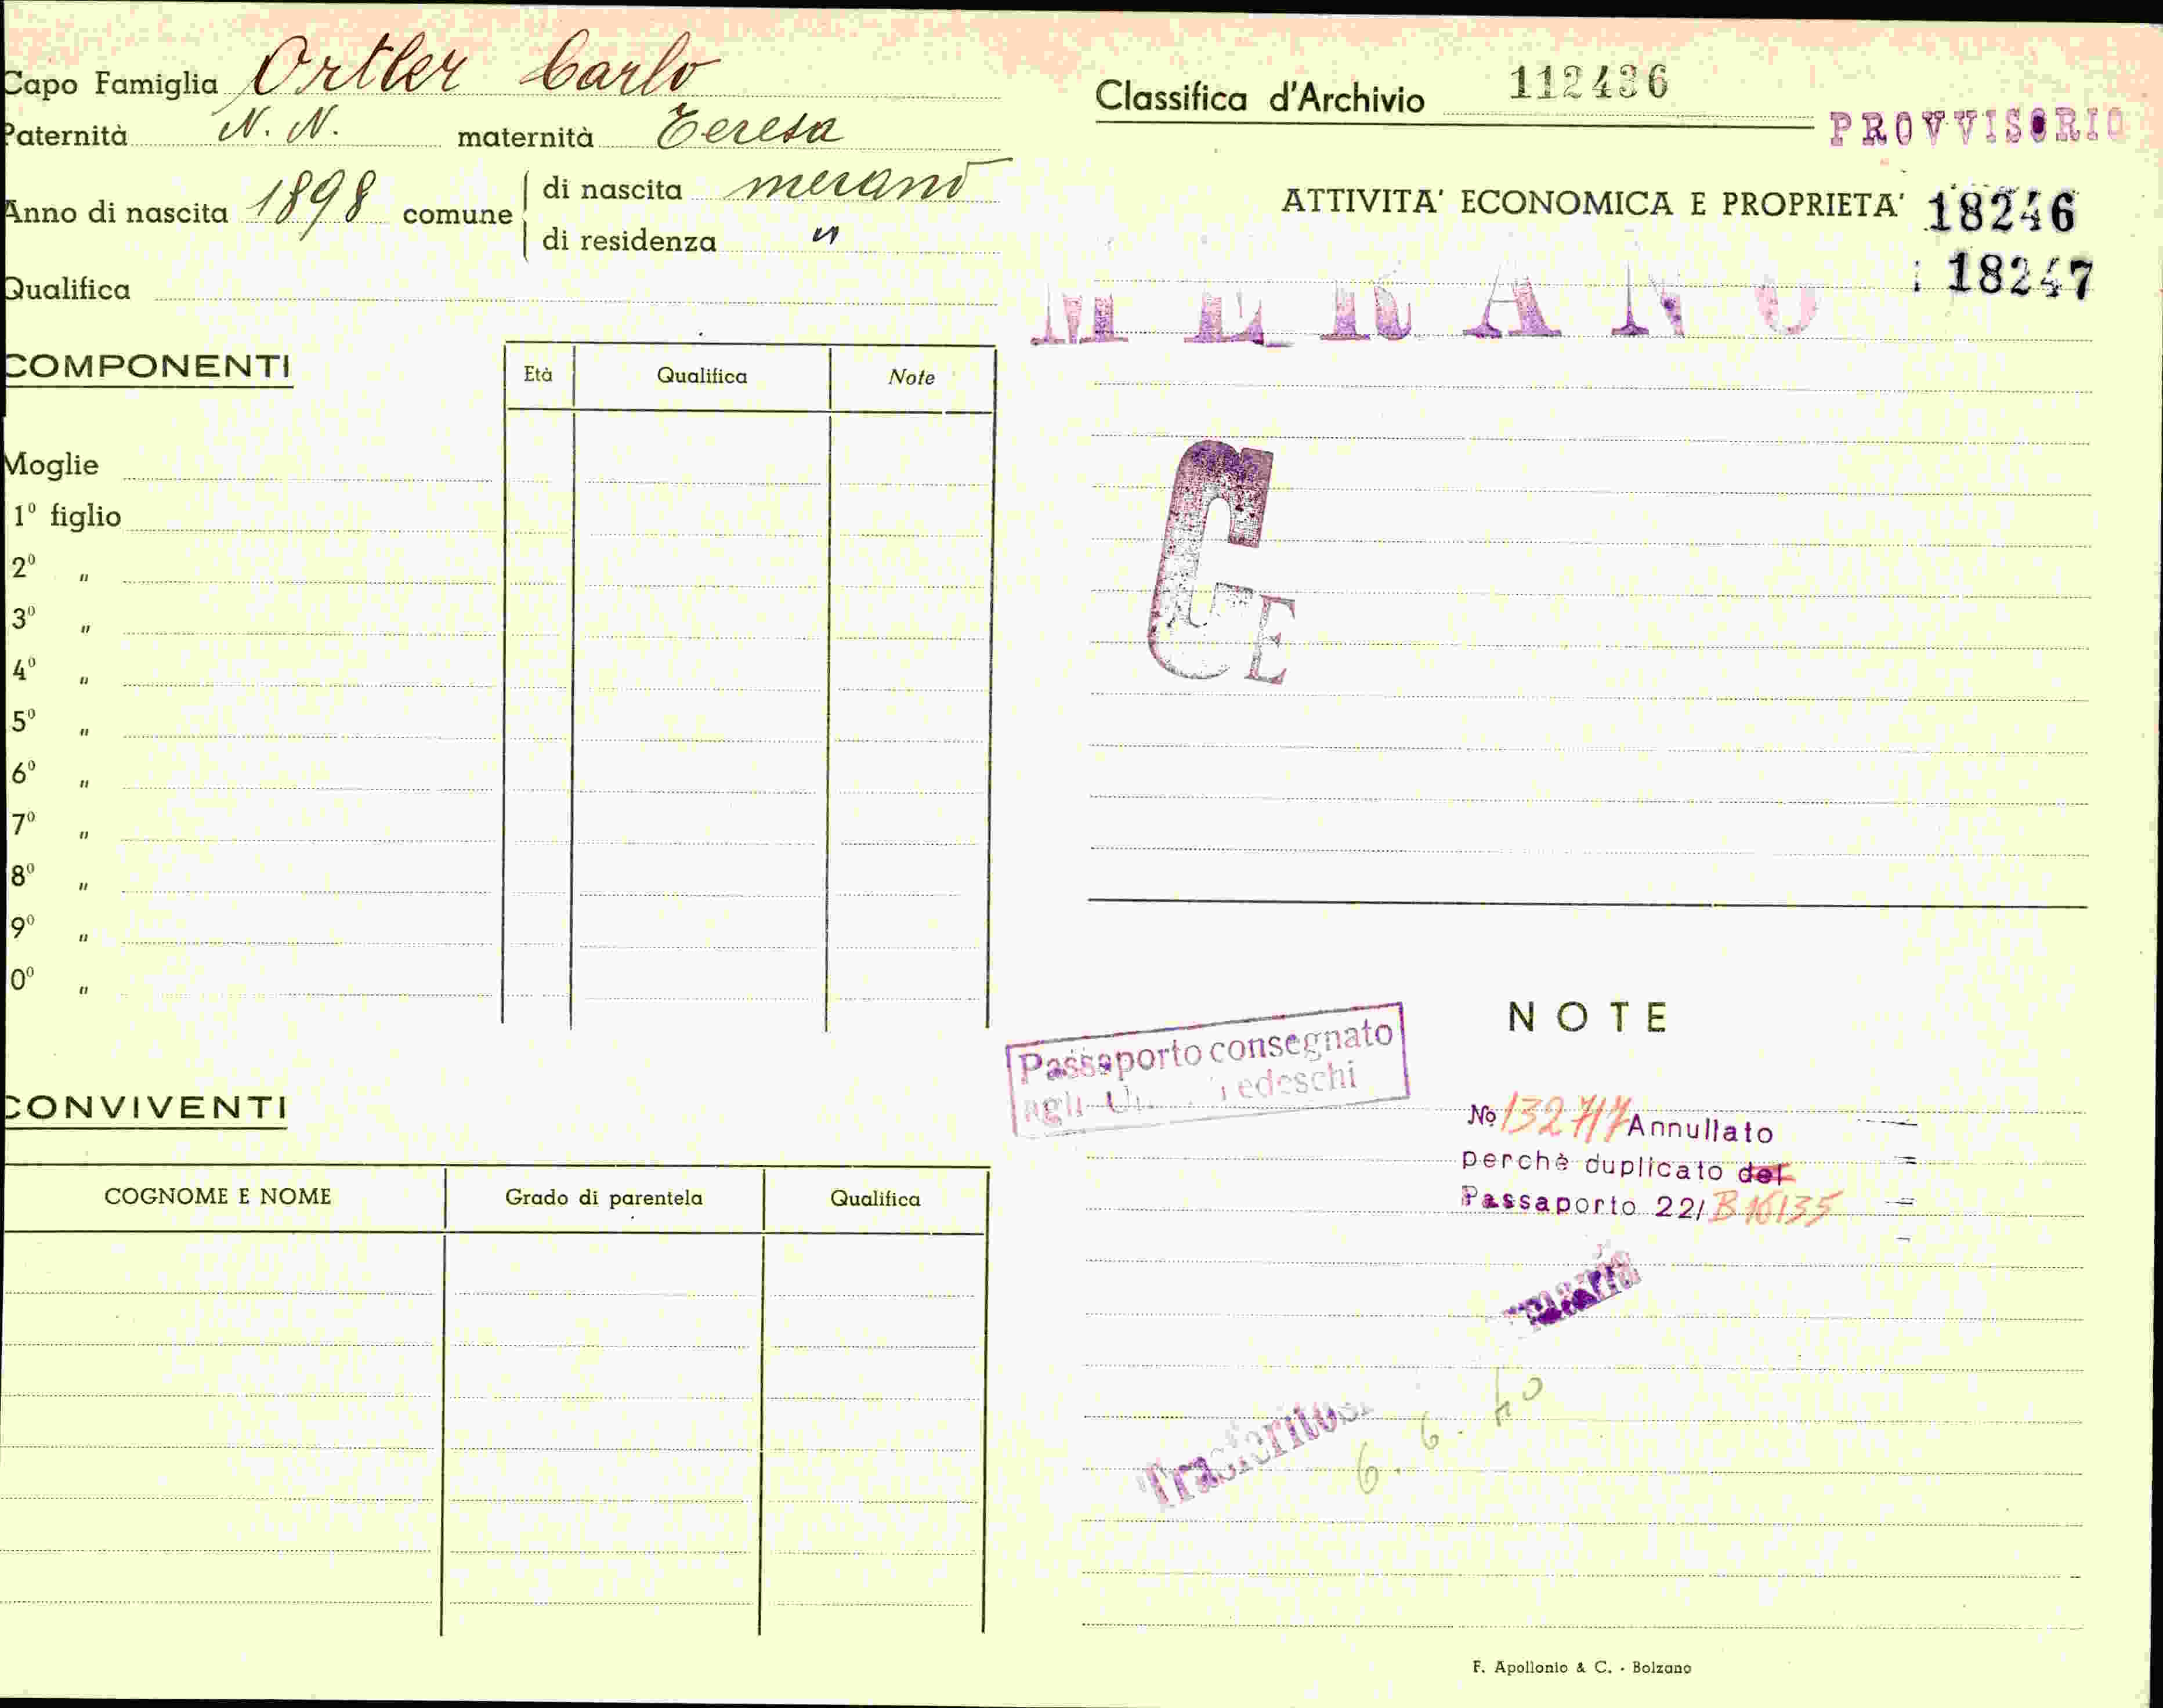 Capo Famiglia Ortler Carlo
Paternità N. N. maternità Teresa
Anno di nascita 1898 comune di nascita merano
di residenza "
Qualifica
COMPONENTI
Età Qualifica Note
Moglie
1º figlio
2º "
3º "
4º "
5º "
6º "
7º "
8º "
9º "
0º "
CONVIVENTI
COGNOME E NOME Grado di parentela Qualifica
Classifica d'Archivio 112436
PROVVISORIO
ATTIVITA' ECONOMICA E PROPRIETA' 18246
18247
MERANO
CE
NOTE
Passaporto consegnato
agli Tedeschi
No 132717 Annullato
perchè duplicato del
Passaporto 22/ B 16135
Trasferitosi
6. 6. 40
F. Apollonio & C. - Bolzano